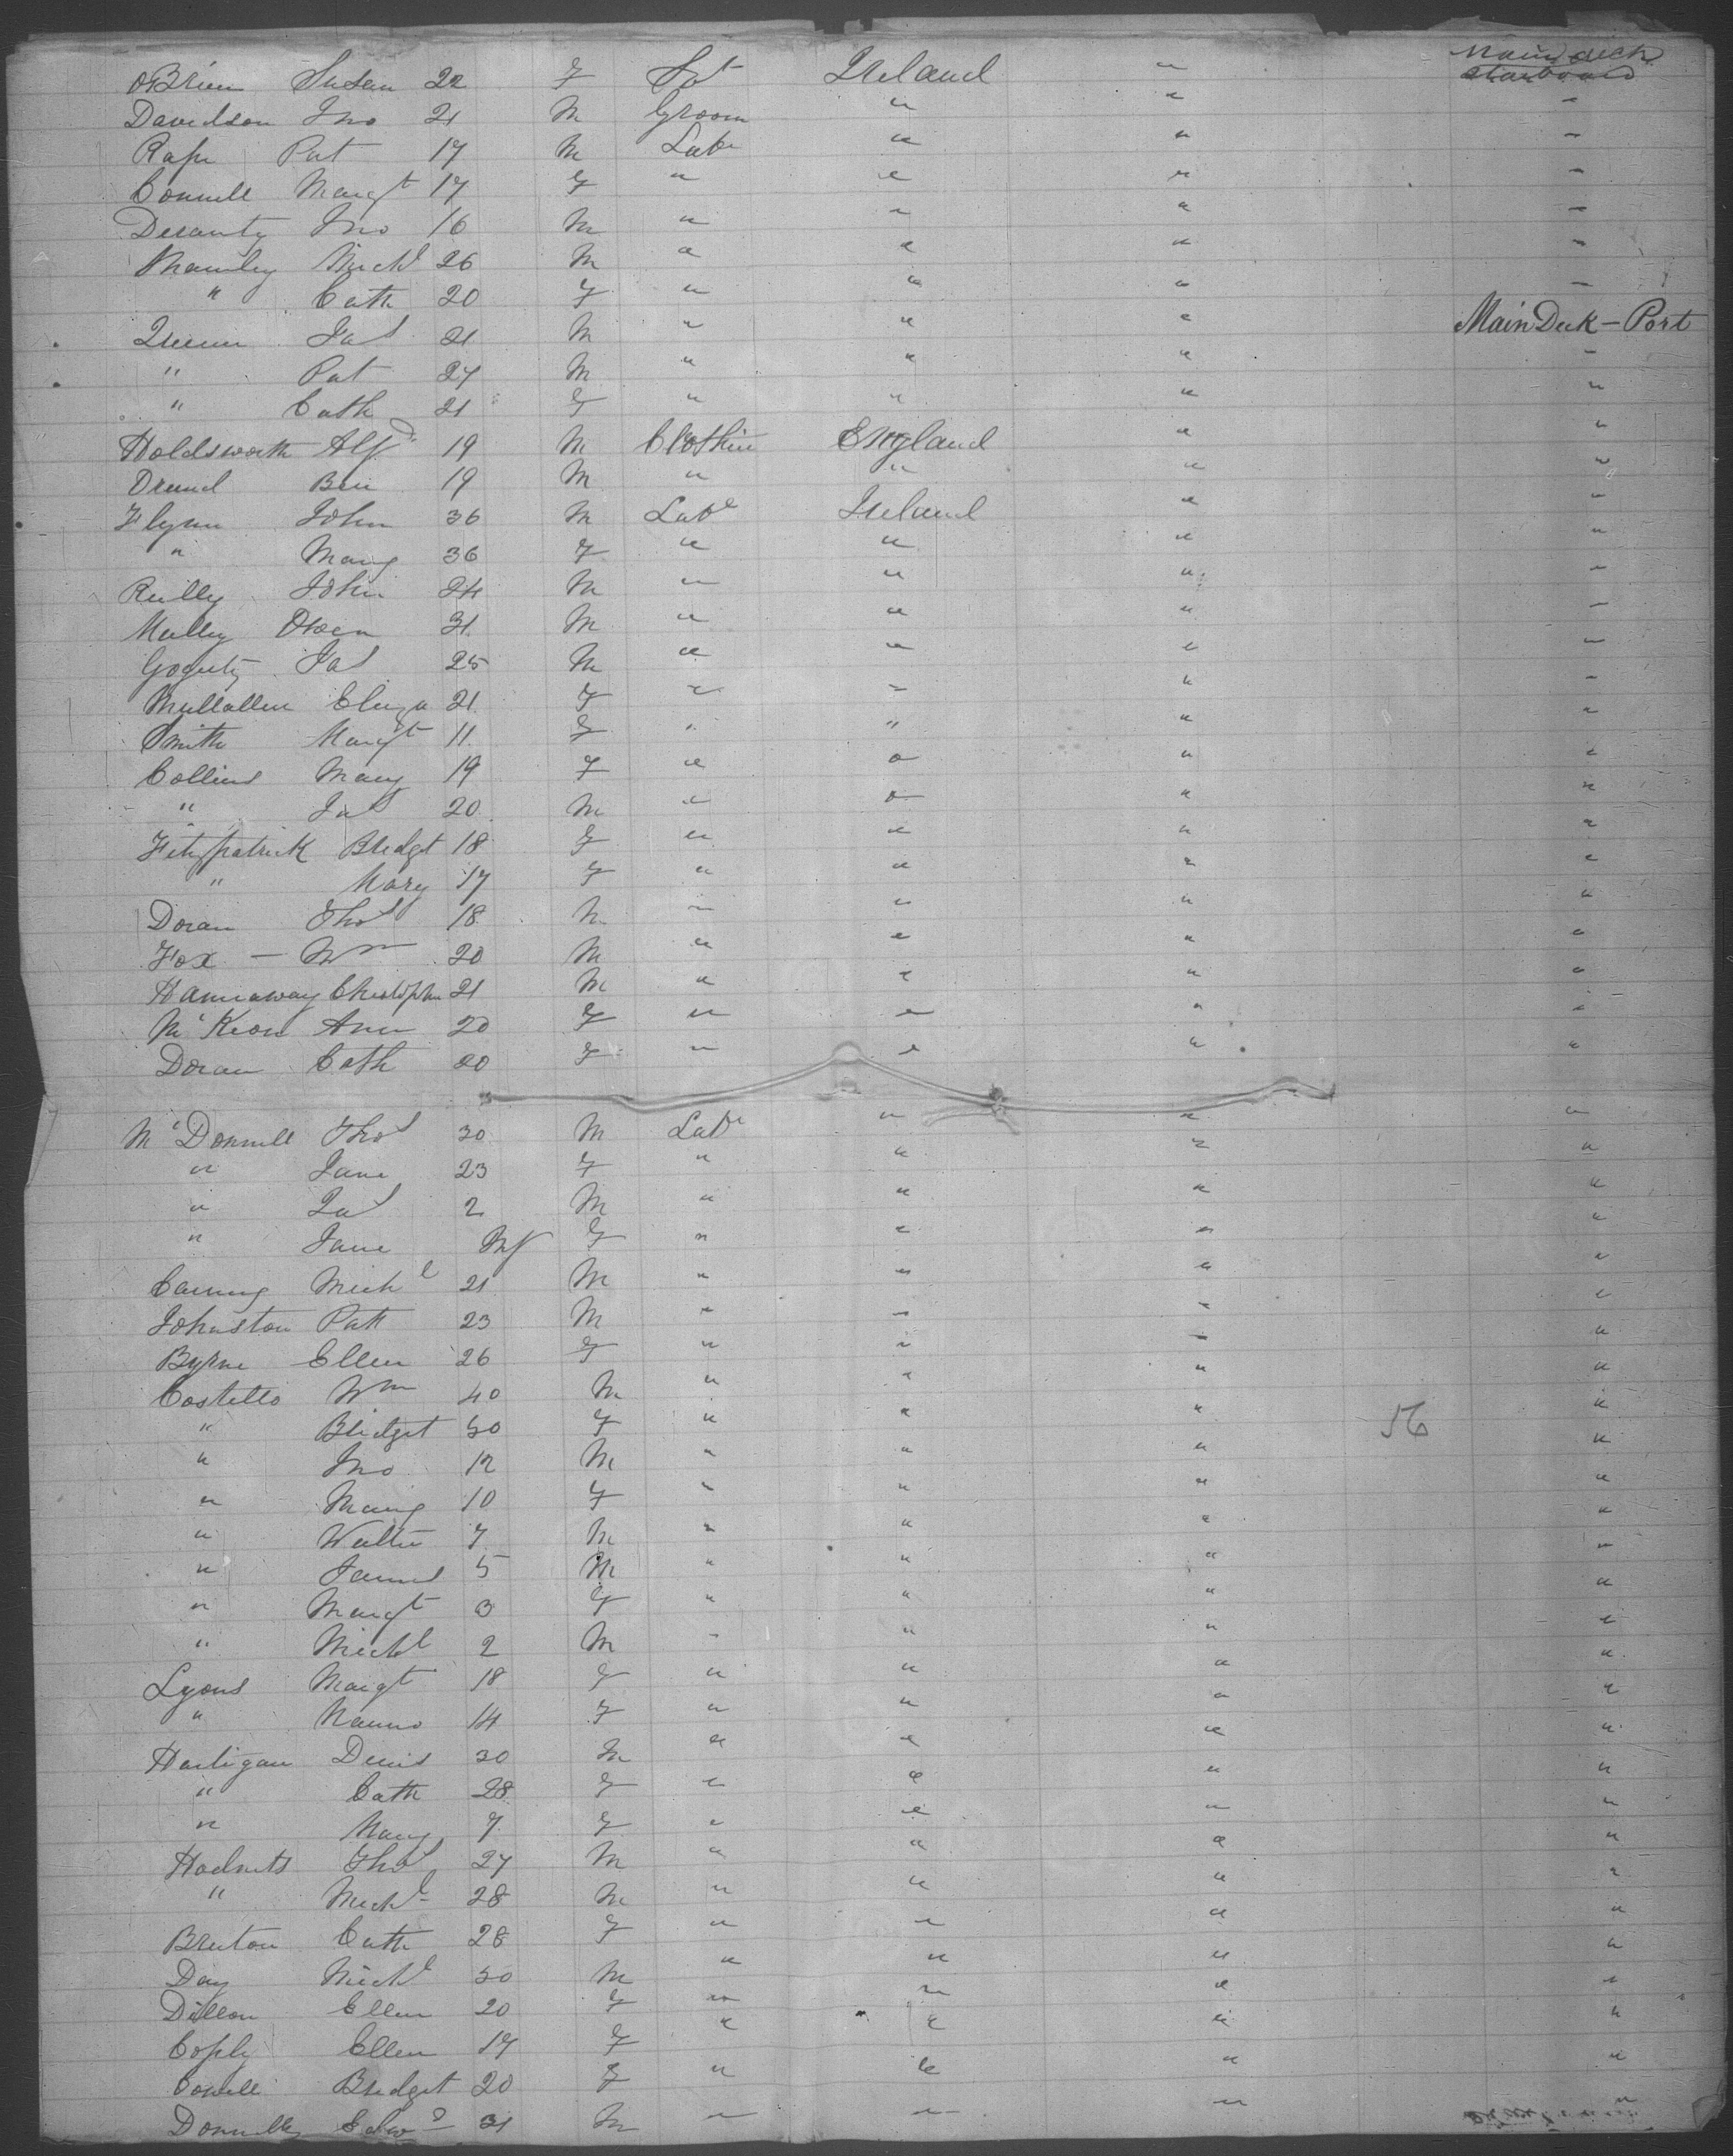 O'Brien Susan 22 F Spt Ireland " Main deck starboard
Davidson Jno 21 M Groom " " "
Rape Pat 17 M Labr " " "
Connell Margt 17 F " " " "
Jno 16 M " " " "
Michl 26 M " " " "
" Cath 20 F " " " "
Quinn Jas 21 M " " " Main Deck - Port
" Pat 27 M " " " "
" Cath 21 F " " " "
Holdsworth Alfd 19 M England " "
Ben 19 M " " " "
Flynn John 36 M Labr Ireland " "
" Mary 36 F " " " "
Reilly John 24 M " " " "
Mulley Owen 31 M " " " "
Jas 25 M " " " "
Mullallen Eliza 21 F " " " "
Smith Margt 11 F " " " "
Collins Mary 19 F " " " "
" Jas 20 M " " " "
Fitzpatrick Bridgt 18 F " " " "
" Mary 17 F " " " "
Doran Thos 18 M " " " "
Fox - Wm 20 M " " " "
Hannaway Christopher 21 M " " " "
McKeon Ann 20 F " " " "
Doran Cath 20 F " " " "
McDonnell Thos 30 M Labr " " "
" Jane 23 F " " " "
" Jas 2 M " " " "
" Jane Inf F " " " "
Michl 21 M " " " "
Johnston Patk 23 M " " " "
Byrne Ellen 26 F " " " "
Costello Wm 40 M " " " "
" Bridget 30 F " " " 56 "
" Jno 12 M " " " "
" Mary 10 F " " " "
" Walter 7 M " " " "
" James 5 M " " " "
" Margt 3 F " " " "
" Michl 2 M " " " "
Lyons Margt 18 F " " " "
" Hanno 14 F " " " "
Hartigan Denis 30 M " " " "
" Cath 28 F " " " "
" Mary 7 F " " " "
Hodnets Thos 27 M " " " "
" Michl 28 M " " " "
Bruton Cath 28 F " " " "
Day Michl 30 M " " " "
Dillon Ellen 20 F " " " "
Coply Ellen 17 F " " " "
Bridget 20 F " " " "
Donnelly Edwd 31 M " " " "